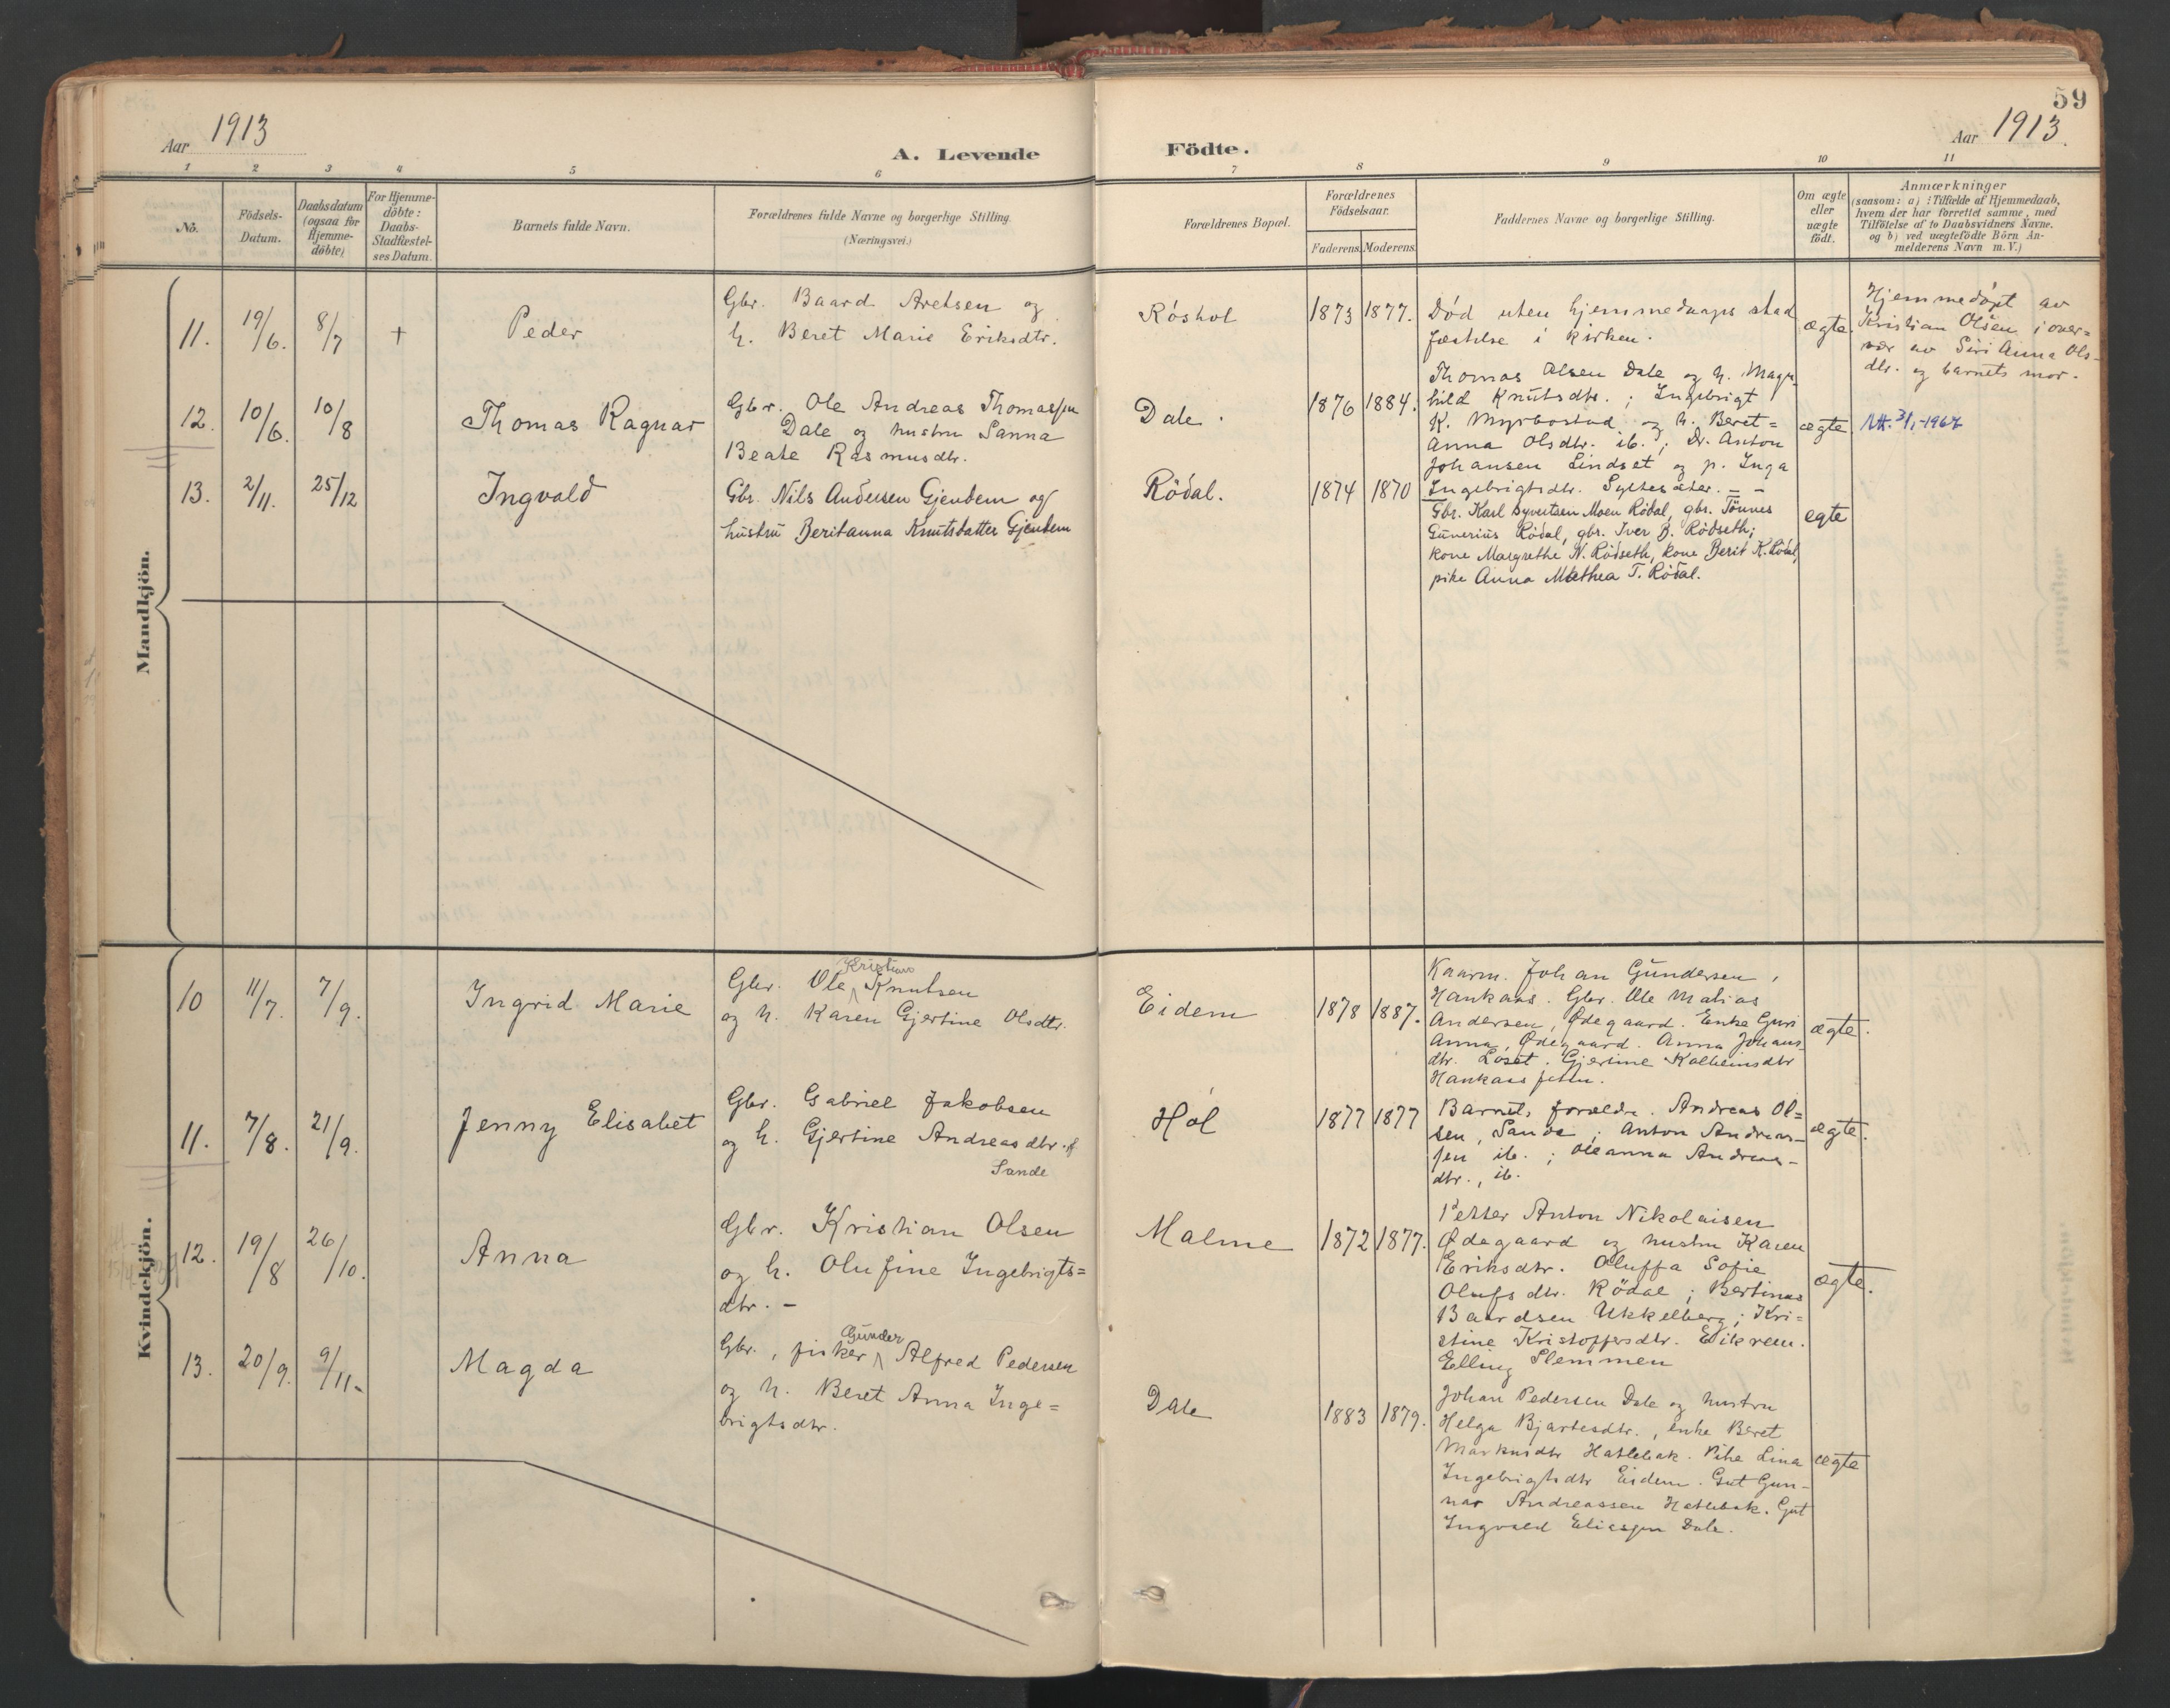 59
Aar 1913
A. Levende
Födte.
Aar 1913.
1 2 3 4 5 6 7 8 9 10 11
No.
Födsels-
Datum.
Daabsdatum
(ogsaa for
Hjemme-
döbte)
For Hjemme-
döbte:
Daabs-
Stadfæstel-
ses Datum.
Barnets fulde Navn.
Forældrenes fulde Navne og borgerlige Stilling.
(Næringsvei.)
Forældrenes Bopæl.
Forældrenes
Födselsaar.
Faderens. Moderens.
Faddernes Navne og borgerlige Stilling.
Om ægte
eller
uægte
födt.
Anmærkninger
(saasom: a) i Tilfælde af Hjemmedaab,
hvem der har forrettet samme, med
Tilföielse af to Daabsvidners Navne.
og b) ved uægtefödte Börn An-
melderens Navn m. V.)
Mandkjön.
11. 19/6. 8/7 + Peder
Gbr. Baard Aretsen og
h. Beret Marie Eriksdtr.
Róshol
1873 1877.
Död uten hjemmedaaps stad
fæstelse i kirken.
ægte.
Hjemmedöpt av
Kristian Olsen i over=
vær av Siri Anna Ols-
dtr. og barnets mor.
12. 10/6. 10/8 Thomas Ragnar
Gbr. Ole Andreas Thomassen
Dale og hustru Sanna
Beate Rasmusdtr.
Dale.
1876 1884.
Thomas Olsen Dale og h. Magn-
hild Knutsdtr.; Ingebrigt
K. Myrbostad og h. Beret=
Anna Olsdtr. ib.; Dr. Anton
Johansen Lindset og p. Inga
Ingebrigtsdtr. Syltesæter. - -
ægte
Att. 3/1-1967
13. 2/11. 25/12 Ingvald
Gbr. Nils Andersen Gjendem og
hustru Beritanna Knutsdatter Gjendem
Rödal.
1874 1870
Gbr. Karl Syvertsen Moen Rödal, gbr. Tönnes
Gunerius Rödal, gbr. Iver B. Rödseth;
kone Margrethe N. Rödseth, kone Berit K. Rödal,
pike Anna Mathea T. Rödal.
egte
Kvindekjön.
10 11/7. 7/9. Ingrid Marie
Kristian
Gbr. Ole Knutsen
og h. Karen Gjertine Olsdtr.
Eidem
1878 1887.
Kaarm. Johan Gundersen,
Hankaas. Gbr. Ole Matias
Andersen, Ödegaard. Enke Guri
Anna, Ödegaard. Anna Johans
dtr. Löset. Gjertine Kolbeinsdtr
Hankaas
ægte.
11. 7/8. 21/9. Jenny Elisabet
Gbr. Gabriel Jakobsen
og h. Gjertine Andreasdtr. f
Sande
Hol
1877 1877
Barnets forældre. Andreas Ol=
sen, Sande; Anton Andreas-
sen ib.; Oleanna Andreas-
dtr., ib.
ægte.
12. 19/8 26/10. Anna
Gbr. Kristian Olsen
og h. Olufine Ingebrigts=
dtr. -
Malme
1872 1877.
Petter Anton Nikolaisen
Ödegaard og hustru Karen
Eriksdtr. Oluffa Sofie
Olufsdtr. Rödal; Bertinus
Baardsen Ukkelberg; Kri=
stine Kristoffersdtr. Eikrem.
Elling Slemmen
ægte.
13. 20/9. 9/11- Magda
Gunder
Gbr., fisker Alfred Pedersen
og h. Beret Anna Inge=
brigtsdtr.
Dale
1883 1879.
Johan Pedersen Dale og hustru
Helga Bjartesdtr., enke Beret
Markusdtr Hatlebak. Pike Lina
Ingebrigtsdtr Eidem. Gut Gun-
nar Andreassen Hatlebak. Gut
Ingvald Eliassen Dale.
ægte